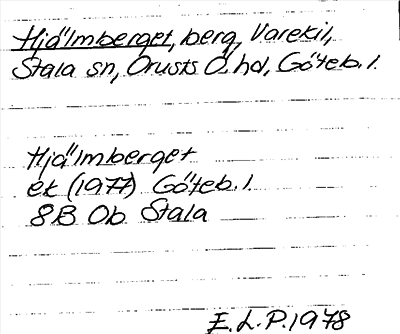 Hjälmberget, berg, Varekil,
Stala sn, Orusts Ö. hd, Göteb. l.
Hjälmberget
ek (1977) Göteb. l
8B Ob Stala
E. L. P. 1978